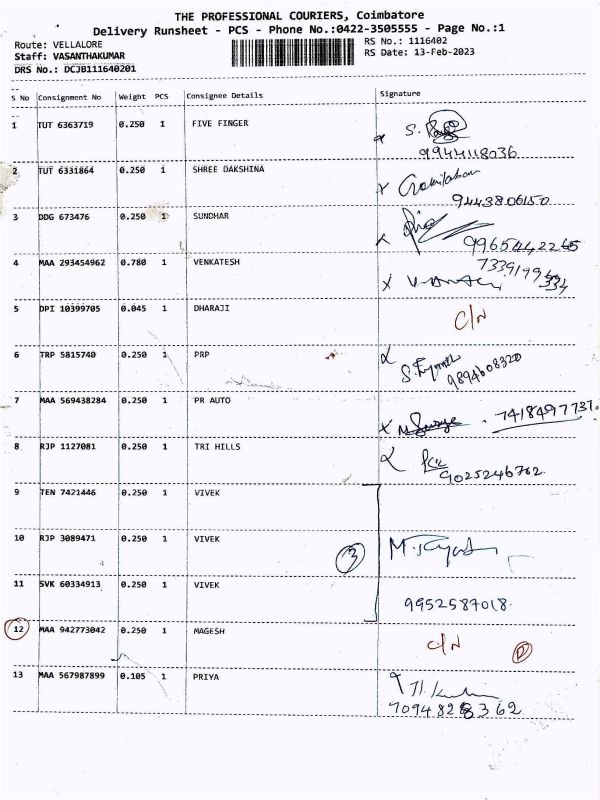 THE PROFESSIONAL COURIERS, Coimbatore
Delivery Runsheet - PCS - Phone No.:0422-3505555 - Page No.:1
Route: VELLALORE RS No.: 1116402
Staff: VASANTHAKUMAR RS Date: 13-Feb-2023
DRS No.: DCJB111640201
S No Consignment No Weight PCS Consignee Details Signature
1 TUT 6363719 0.250 1 FIVE FINGER
9944118036
2 TUT 6331864 0.250 1 SHREE DAKSHINA
9443806150
3 DDG 673476 0.250 1 SUNDHAR
4 MAA 293454962 0.780 1 VENKATESH
5 DPI 10399705 0.045 1 DHARAJI C/N
6 TRP 5815740 0.250 1 PRP
9894608320
7 MAA 569438284 0.250 1 PR AUTO
7418497731.
8 RJP 1127081 0.250 1 TRI HILLS
9025246762
9 TEN 7421446 0.250 1 VIVEK
10 RJP 3089471 0.250 1 VIVEK 3
11 SVK 60334913 0.250 1 VIVEK
9952587018.
12 MAA 942773042 0.250 1 MAGESH C/N
13 MAA 567987899 0.105 1 PRIYA